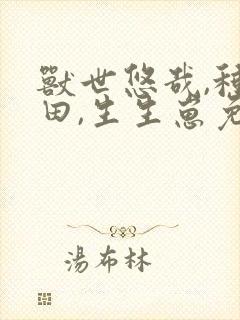 獸世悠哉,種
田,生生崽兔
湯布林